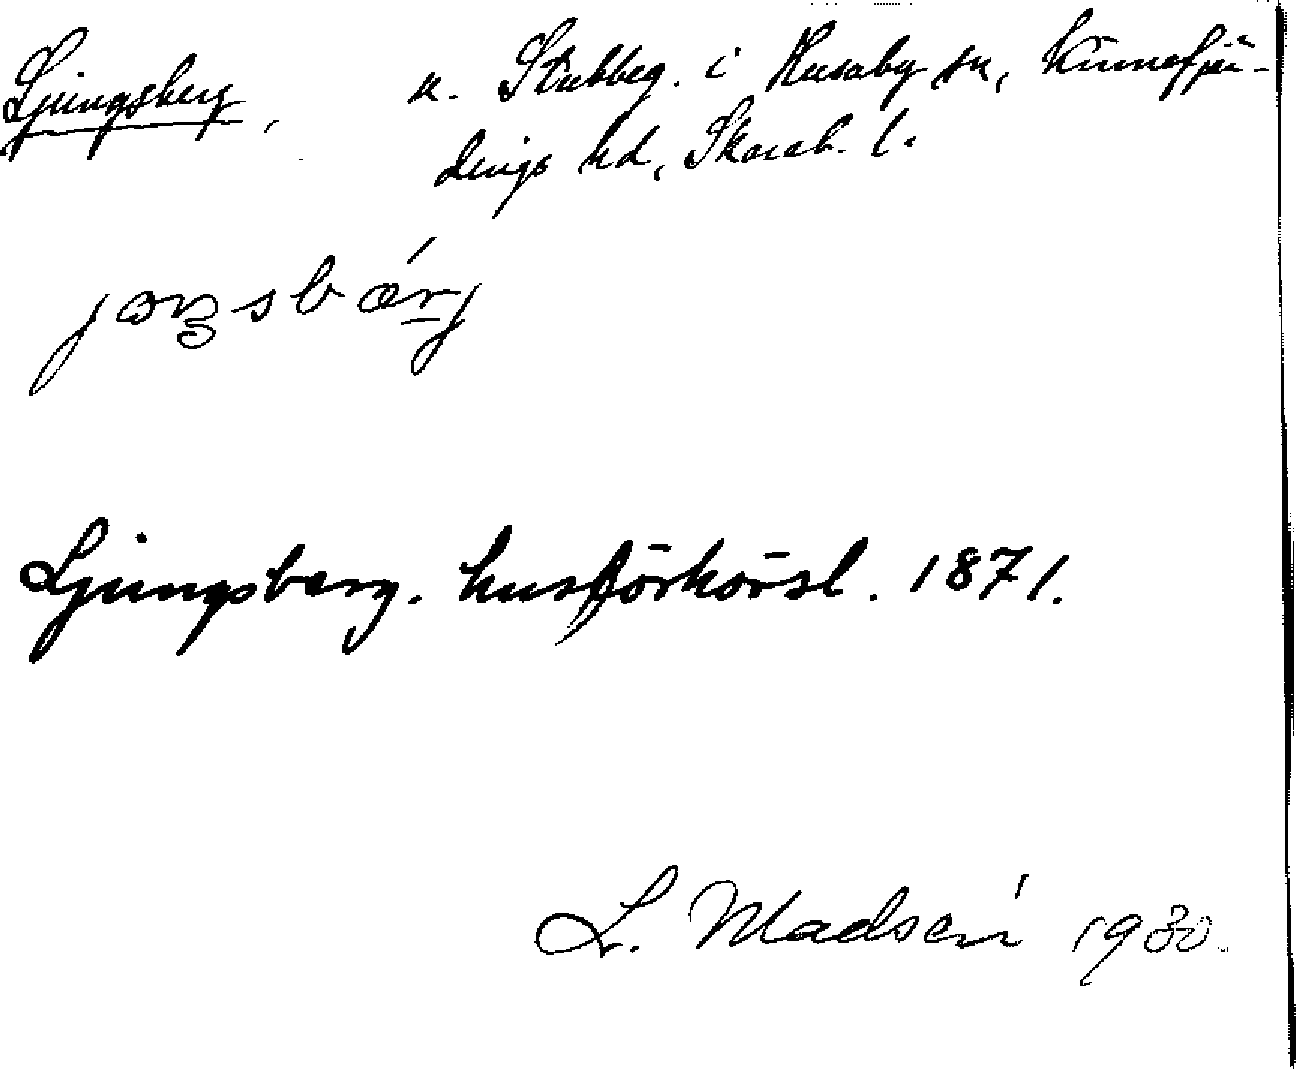 Ljungsberg, u. Stubbeg. i Husaby sn, Kinnefjär-
dings hd, Skarab. l.
Ljungsberg. husförhörsl. 1871.
L. Madsén 1930.